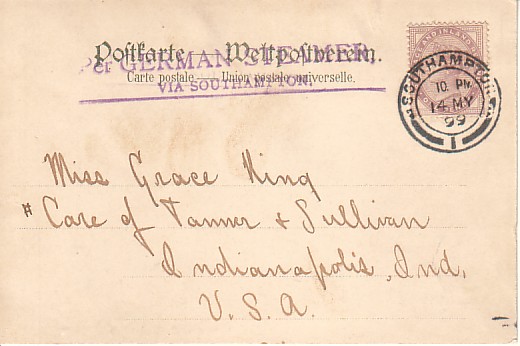 Postkarte — Weltpostverein.
Per GERMAN STEAMER,
Carte postale — Union postale universelle.
VIA SOUTHAMPTON.
SOUTHAMPTON
10. PM
14 MY
99
1
Miss Grace King
# Care of Tanner & Sullivan
Indianapolis, Ind.
U. S. A.